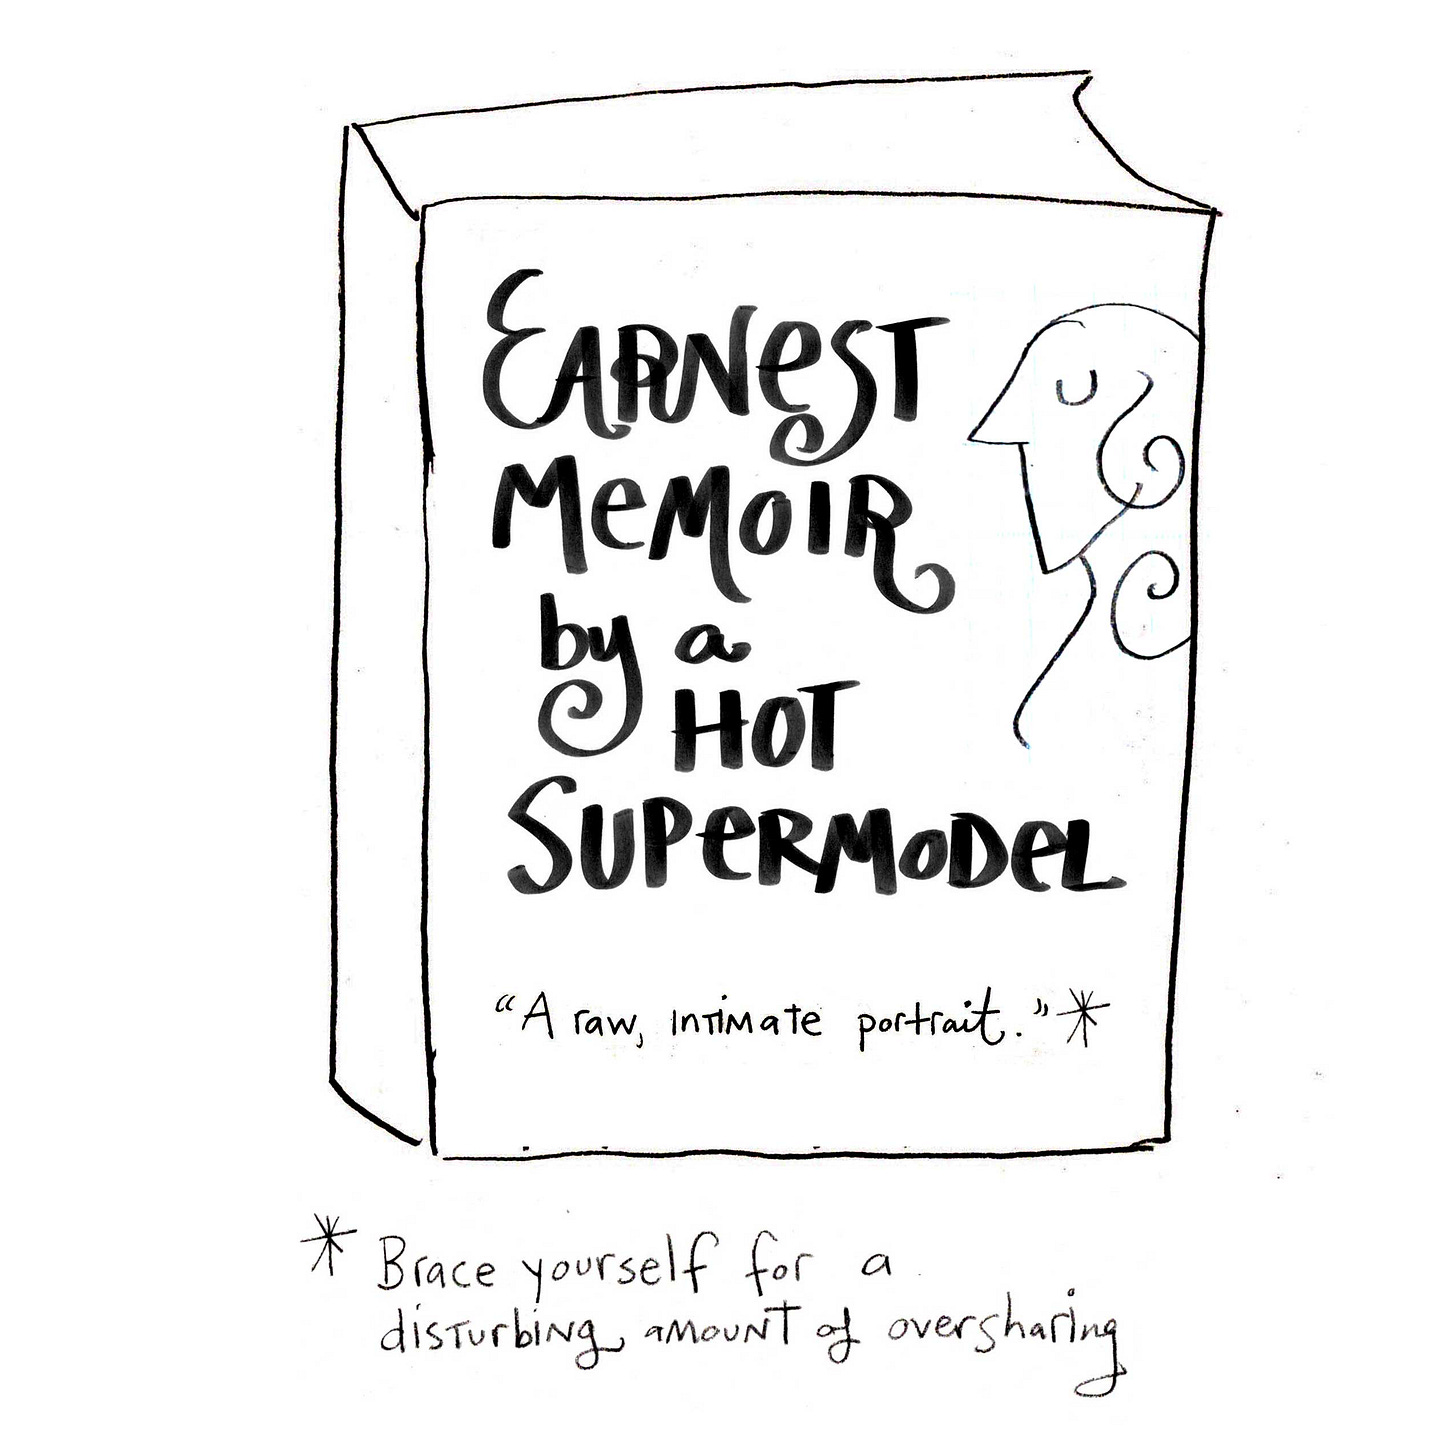 EARNeST
MeMoIR
by a
HOT
SUPeRMoDeL
“A raw, intimate portrait.”*
* Brace yourself for a
disturbing amount of oversharing